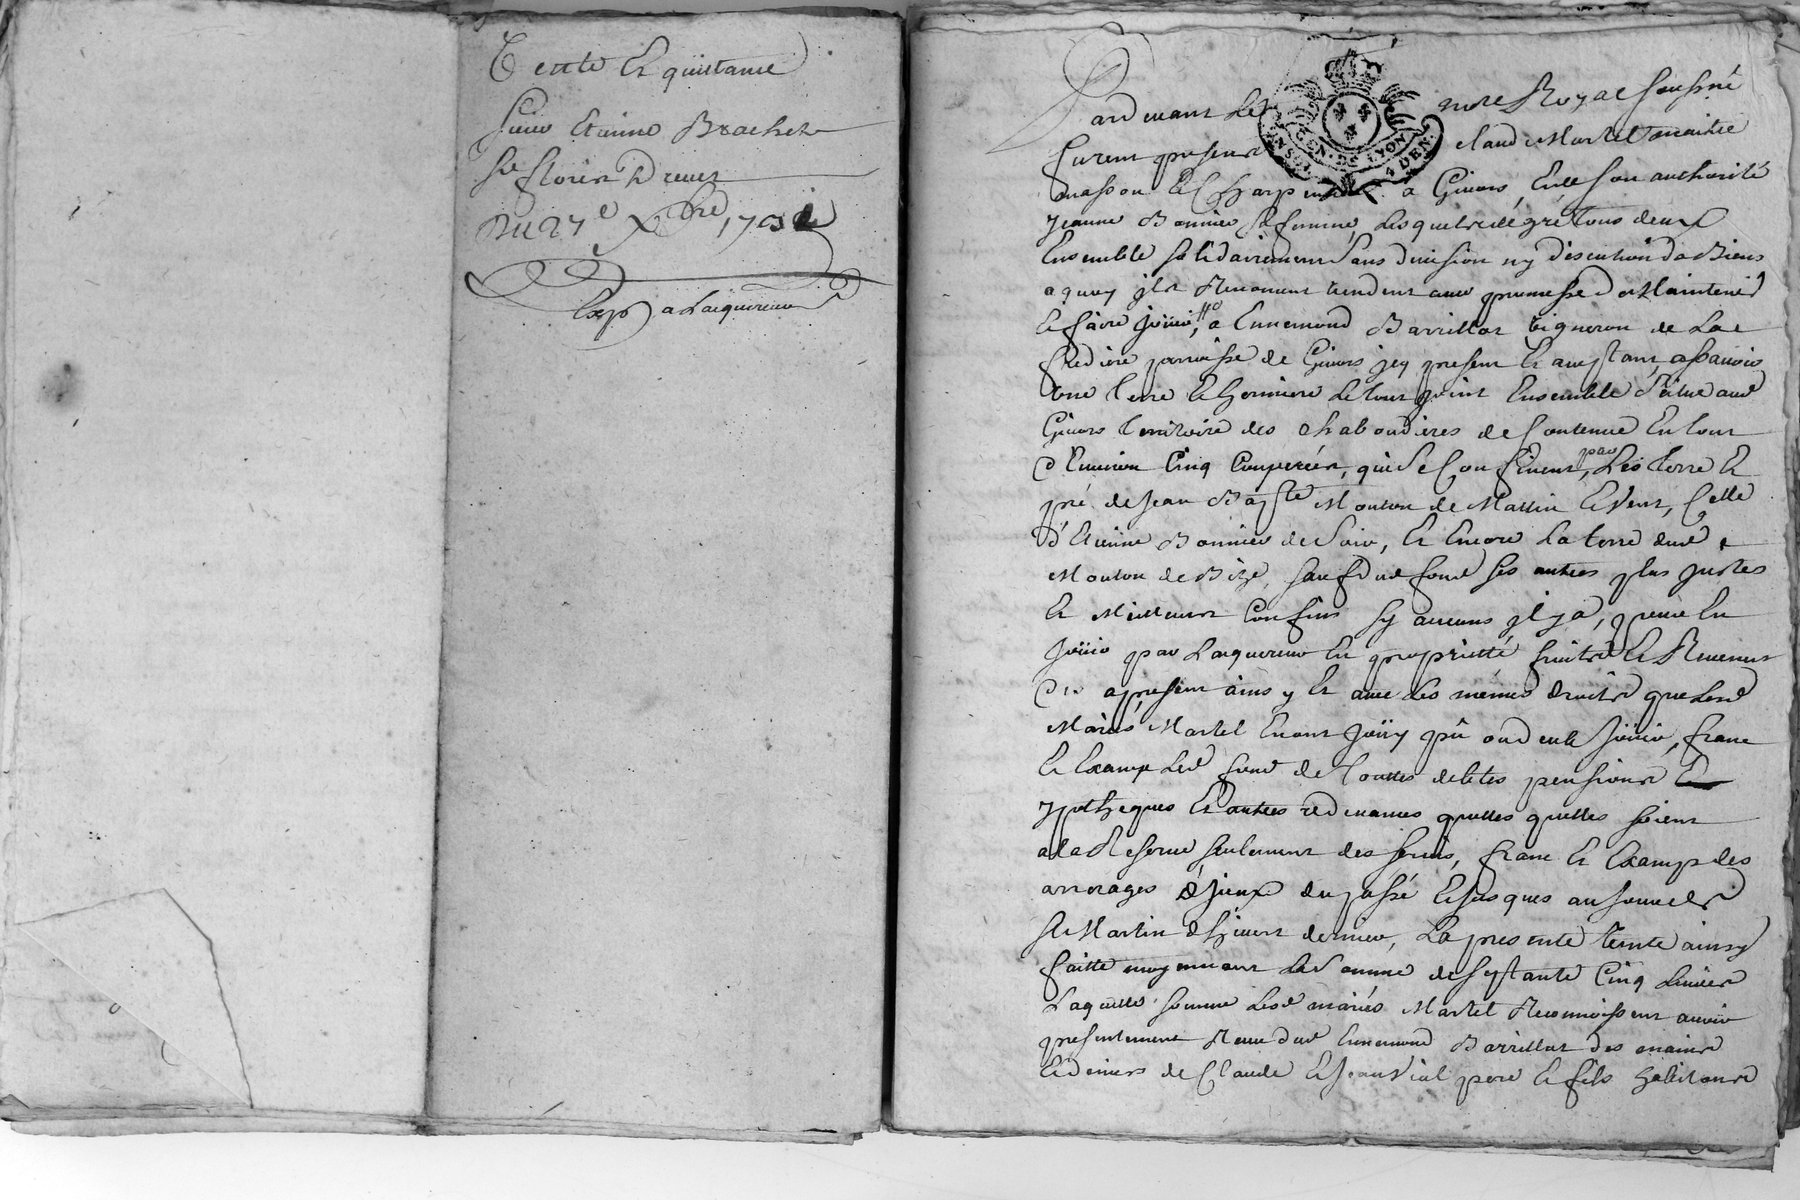 Vente Et quittance
pour Etienne Brachet
St florir Dreuet
Du 27e Xbre 1731
Exp a Lacquereur
Pardevant Le notre Royal soussiné
furent presents Claude Martel maitre
masson Et Charpentier a Givors, Et de son authorité
jeanne Bonnier sa femme, Lesquels de gré tous deux
Ensemble solidairement sans division ny discution de Biens
a quoy jls Renoncent vendent avec promesse de Maintenir
Et faire joüir, a Ennemond Barrillot vigneron de La
fredière parroisse de Givors jcy present Et acceptant, assavoir
Une terre Et hermiere Le tout joint Ensemble Située aud
Givors territoire des chaboudieres de Contenue En tout
d'Environ Cinq Couperées, qui Se Confinent, par Les terre Et
pré de jean Baptte Mouton de Matin Et Vent, Celle
d'Etienne Bonnier de Soir, Et Encore La terre dud
Mouton de Bize, sauf dud fond ses autres plus justes
Et Meilleurs Confins sy aucuns jl y a, pour En
joüir par Lacquereur En proprietté fruits Et Revenus
Des a present ainsy Et avec Les mêmes droits que Lesd
Mariés Martel En ont joüy pû ou deub joüir, franc
Et Exampt Led fond de touttes debtes pensions Et
ypotheques Et autres redevances quelles quelles soient
a la Reserve seulement des servis, franc Et Exampt des
arrerages d'jceux du passé Et jusques au jour de
St Martin d'hiver dernier, La presente vente ainsy
faitte moyennant La Somme de septante Cinq Livres
Laquelle somme Lesd mariés Martel Reconnoissent avoir
presentement Reçue dud Ennemond Barrillot des mains
Et deniers de Claude Et jean Vial pere Et fils habitants
GEN. DE LYON
4 DEN.